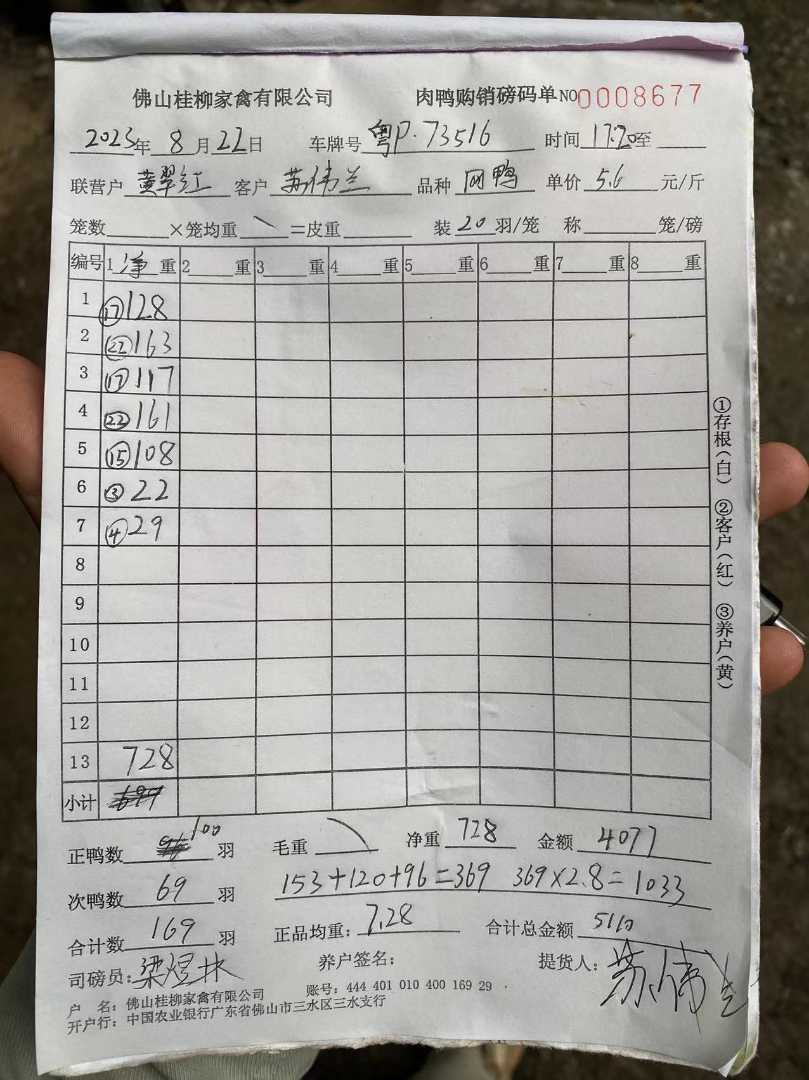 佛山桂柳家禽有限公司 肉鸭购销磅码单 NO 0008677
2023年 8月22日 车牌号 粤P·73516 时间 17:20至
联营户 黄翠红 客户 苏伟兰 品种 网鸭 单价 5.6 元/斤
笼数 ×笼均重 =皮重 装 20 羽/笼 称 笼/磅
编号 1 净 重 2 重 3 重 4 重 5 重 6 重 7 重 8 重
1 ⑰128
2 ㉒163
3 ⑰117
4 ㉒161
5 ⑮108
6 ③22
7 ④29
8
9
10
11
12
13 728
小计
正鸭数 100 羽 毛重 净重 728 金额 4077
次鸭数 69 羽 153+120+96=369 369×2.8=1033
合计数 169 羽 正品均重: 7.28 合计总金额 5110
司磅员: 梁煜林 养户签名: 提货人: 苏伟兰
户 名: 佛山桂柳家禽有限公司 账号: 444 401 010 400 169 29
开户行: 中国农业银行广东省佛山市三水区三水支行
①存根(白) ②客户(红) ③养户(黄)